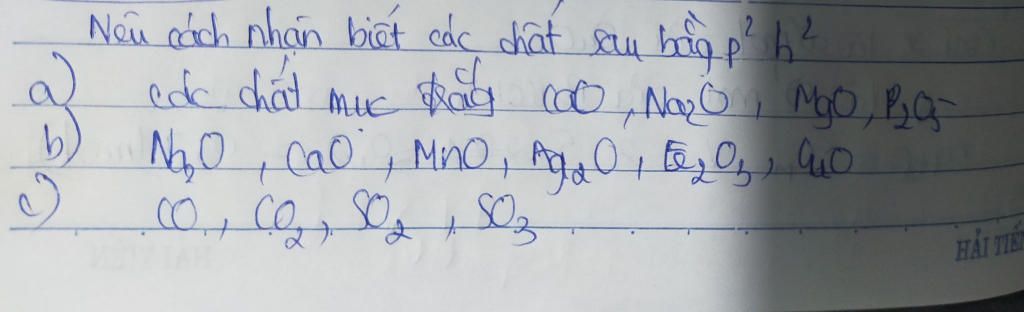 Nêu cách nhận biết các chất sau bằg p² h²
a) các chất màu trắg CaO, Na₂O, MgO, P₂O₅
b) Na₂O, CaO, MnO, Ag₂O, Fe₂O₃, CuO
c) CO, CO₂, SO₂, SO₃
HẢI TIẾ